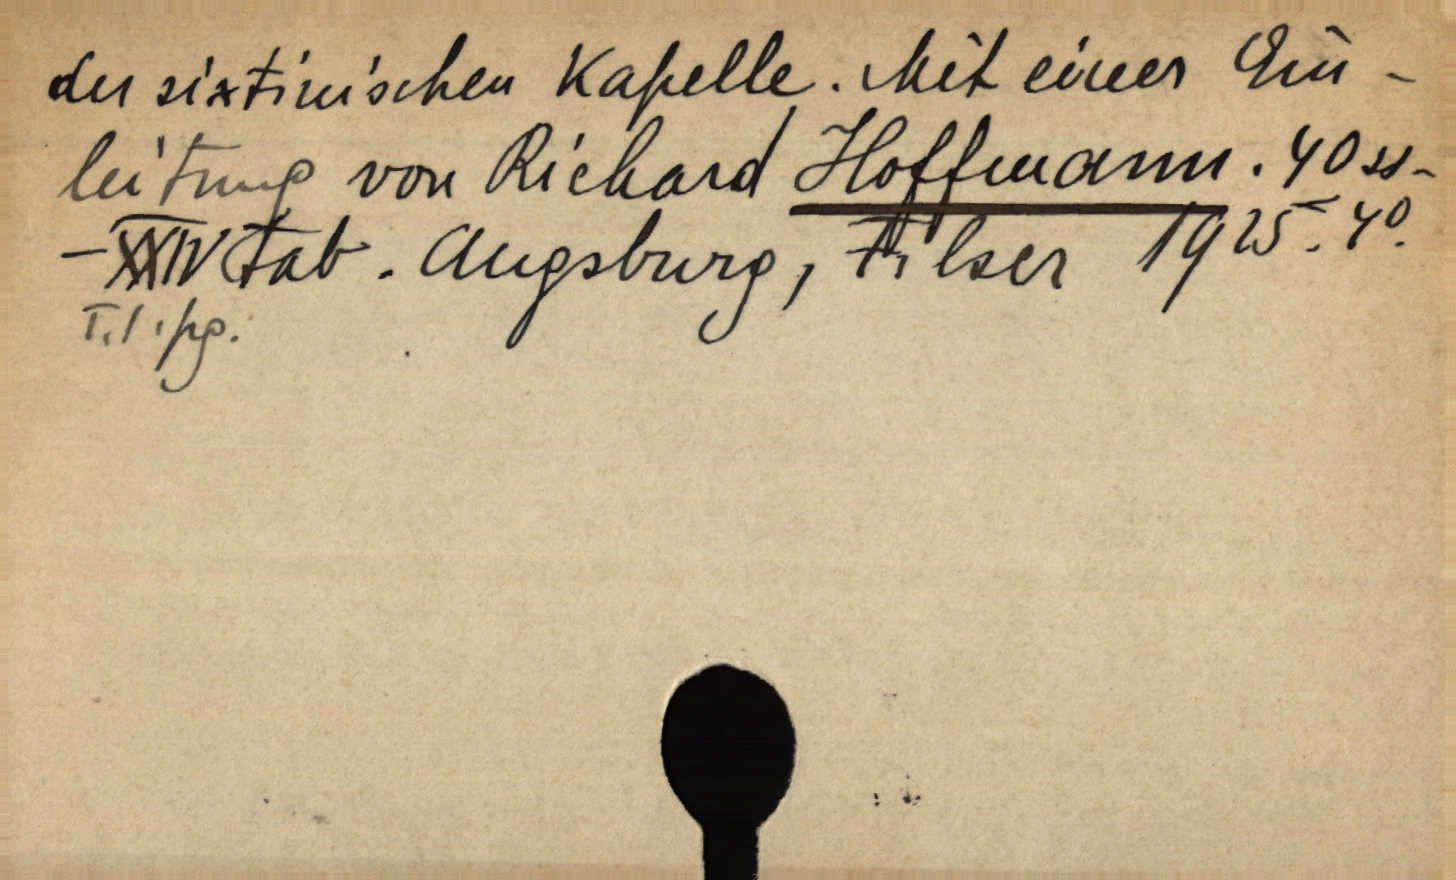 der sixtinischen Kapelle. Mit einer Ein-
leitung von Richard Hoffmann. 40 ss.
– XXIV Tab. Augsburg, Filser 1925. 4°.
I. 1. pg.